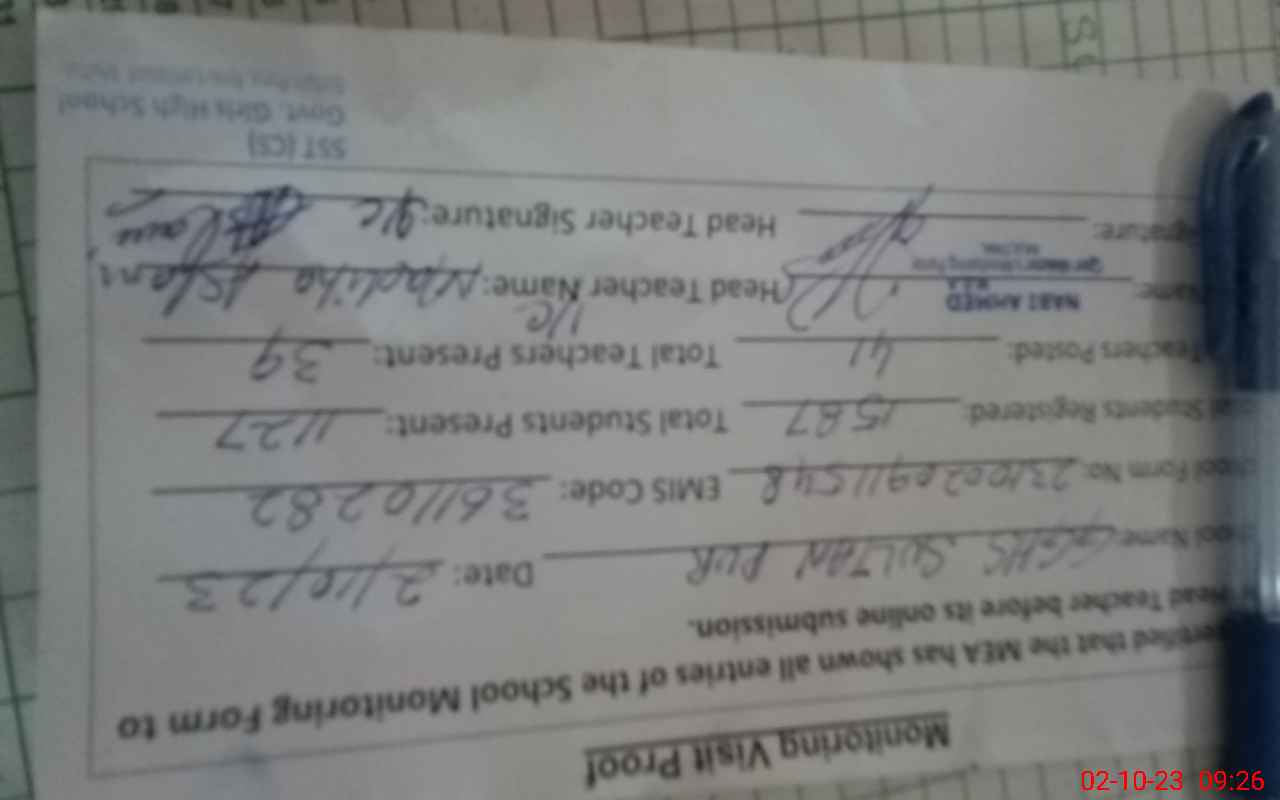 Monitoring Visit Proof
ertified that the MEA has shown all entries of the School Monitoring Form to
Head Teacher before its online submission.
ool Name: GGHS SULTAN PUR Date: 2/10/23
ool Form No: EMIS Code: 36110282
Students Registered: 1587 Total Students Present: 1127
Teachers Posted: 41 Total Teachers Present: 39
Name: NABI AHMED Head Teacher Name: I/C Madiha Aslam
ignature: Head Teacher Signature: I/C
SST (CS)
Govt. Girls High School
02-10-23 09:26